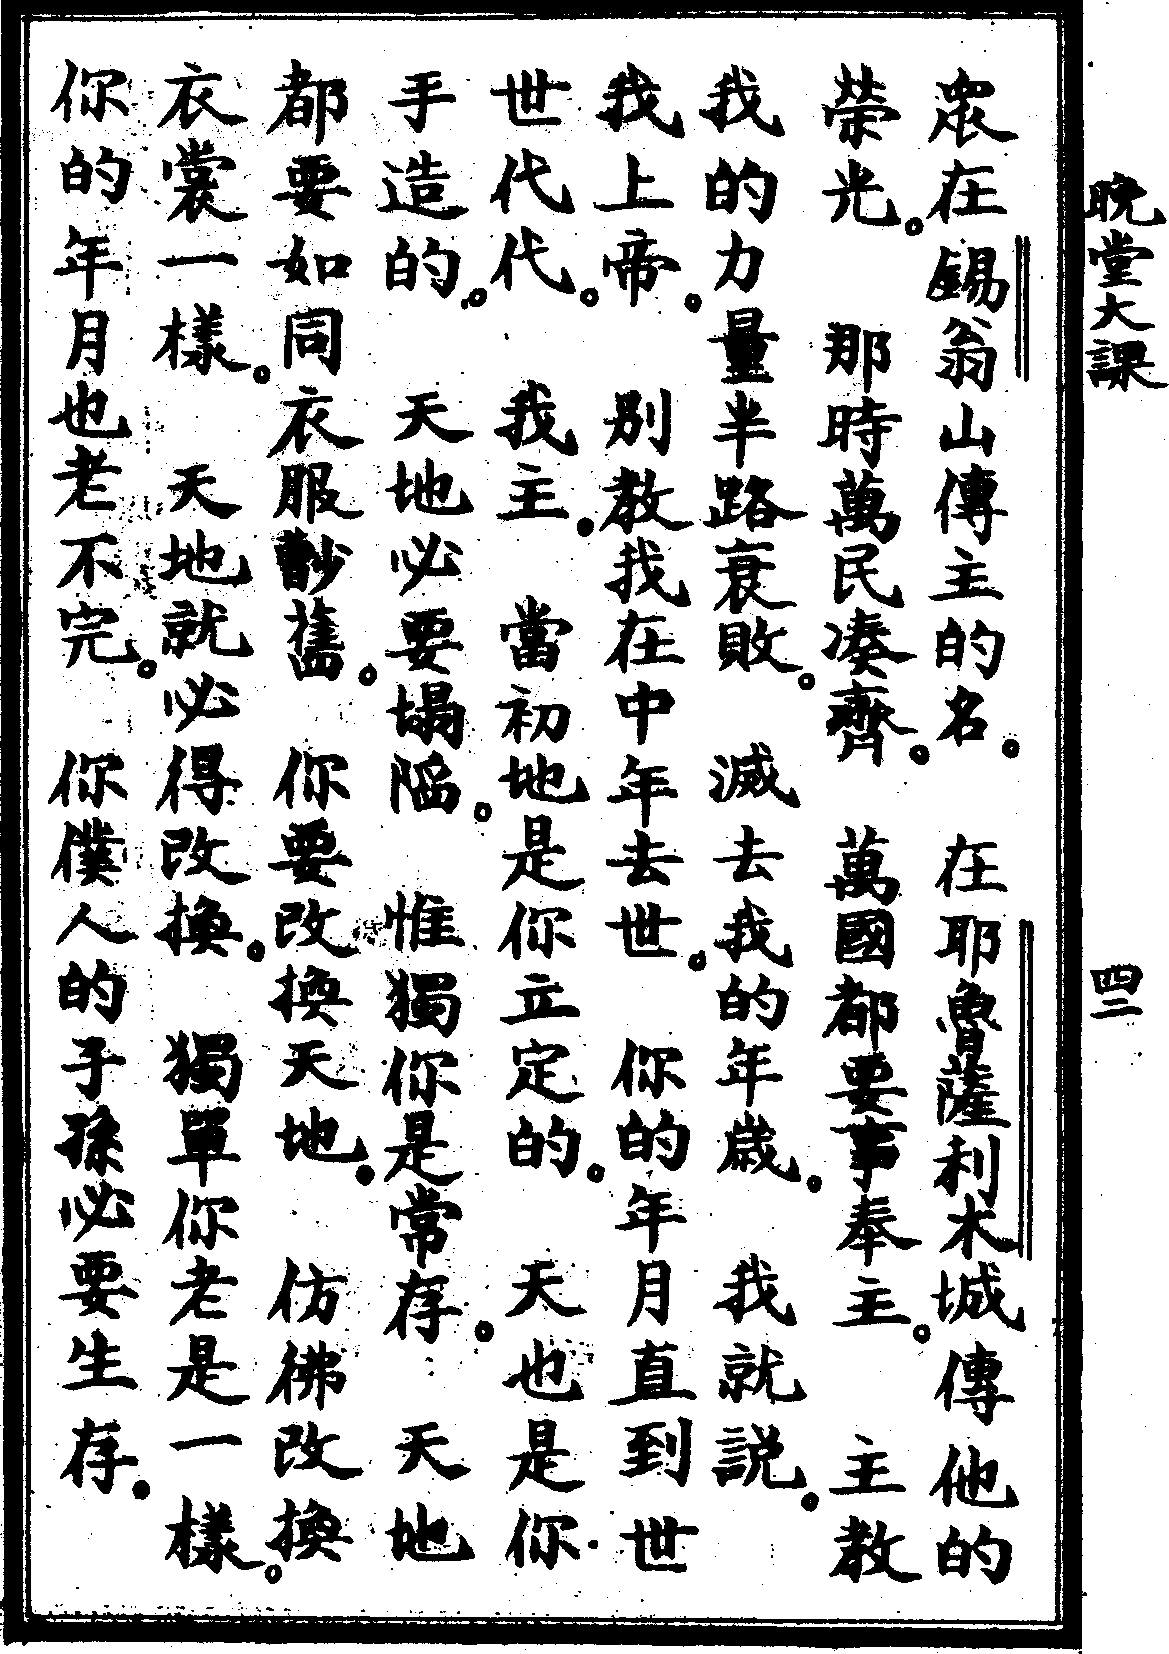 晚堂大課
四二
衆在錫翁山傳主的名。 在耶魯薩利木城傳他的
榮光。 那時萬民凑齊。 萬國都要事奉主。 主教
我的力量半路衰敗。 滅去我的年歲。 我就説。
我上帝。 别教我在中年去世。 你的年月直到世
世代代。 我主。 當初地是你立定的。 天也是你
手造的。 天地必要塌陷。 惟獨你是常存。 天地
都要如同衣服舊。 你要改換天地。 仿彿改換
衣裳一樣。 天地就必得改換。 獨單你老是一樣。
你的年月也老不完。 你僕人的子孫必要生存。